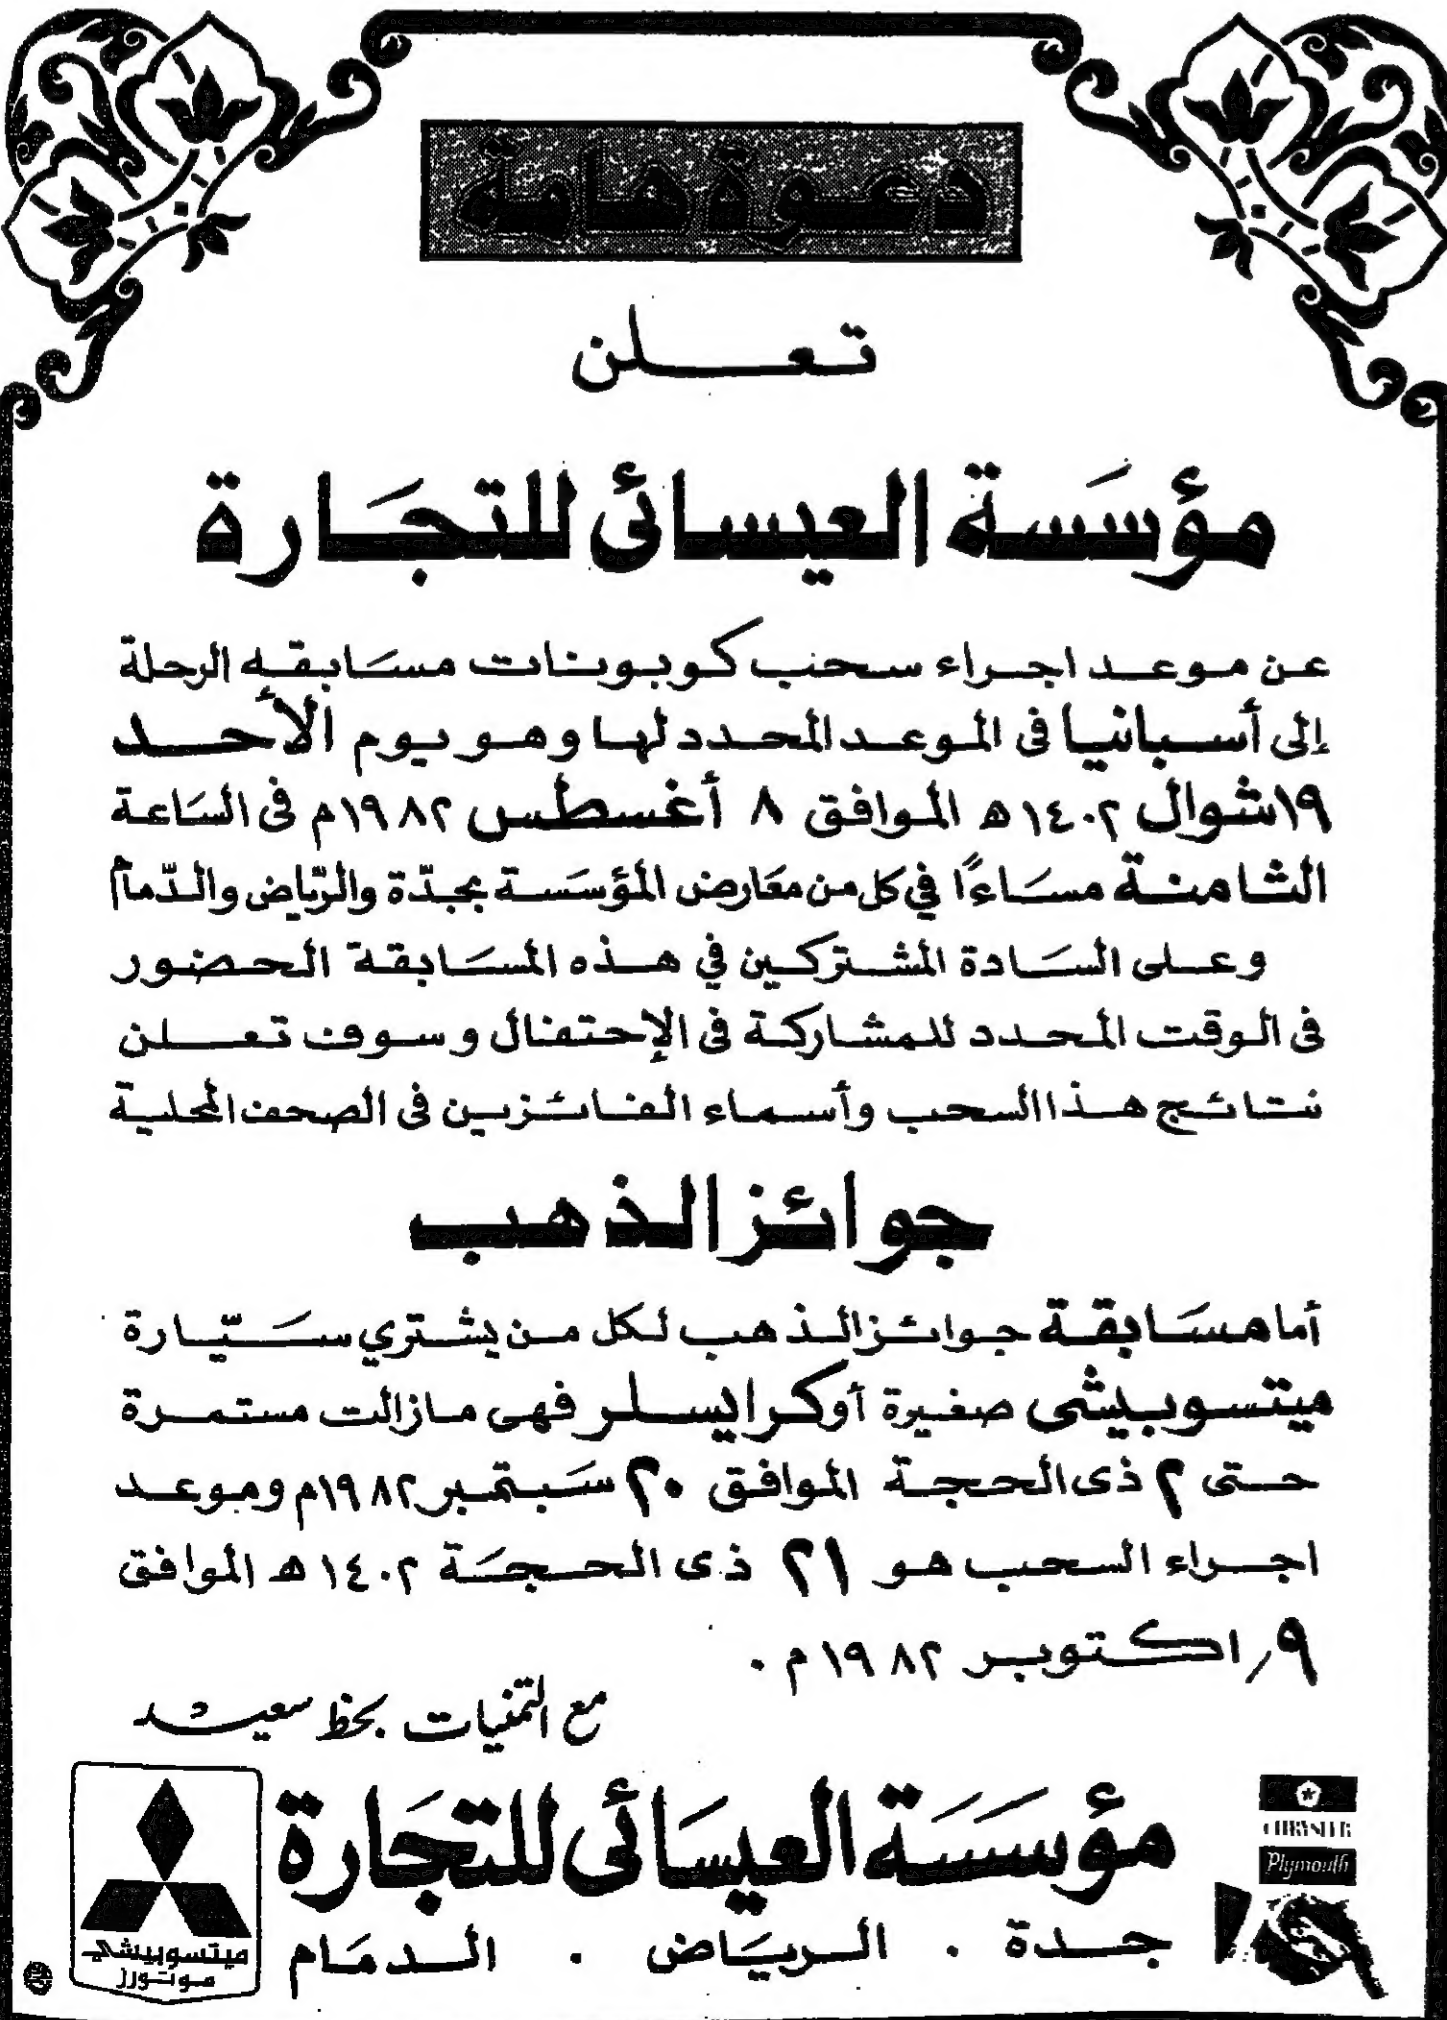 دعوة هامة
تعلن
مؤسسة العيسائى للتجارة
عن موعد اجراء سحب كوبونات مسابقه الرحلة
إلى أسبانيا فى الموعد المحدد لها وهو يوم الأحد
١٩ شوال ١٤٠٢ ه الموافق ٨ أغسطس ١٩٨٢م فى الساعة
الثامنة مساءًا في كل من معارض المؤسسة بجدّة والرّياض والدّمام
وعلى السادة المشتركين في هذه المسابقة الحضور
فى الوقت المحدد للمشاركة فى الإحتفال وسوف تعلن
نتائج هذا السحب وأسماء الفائزين فى الصحف المحلية
جوائز الذهب
أما مسابقة جوائز الذهب لكل من يشتري سيّارة
ميتسوبيشى صغيرة أو كرايسلر فهى مازالت مستمرة
حتى ٢ ذى الحجة الموافق ٢٠ سبتمبر ١٩٨٢م وموعد
اجراء السحب هو ٢١ ذى الحجة ١٤٠٢ ه الموافق
٩/ اكتوبر ١٩٨٢ م .
مع التمنيات بحظ سعيد
مؤسسة العيسائى للتجارة
جدة . الرياض . الدمام
ميتسوبيشي
موتورز
CHRYSLER
Plymouth